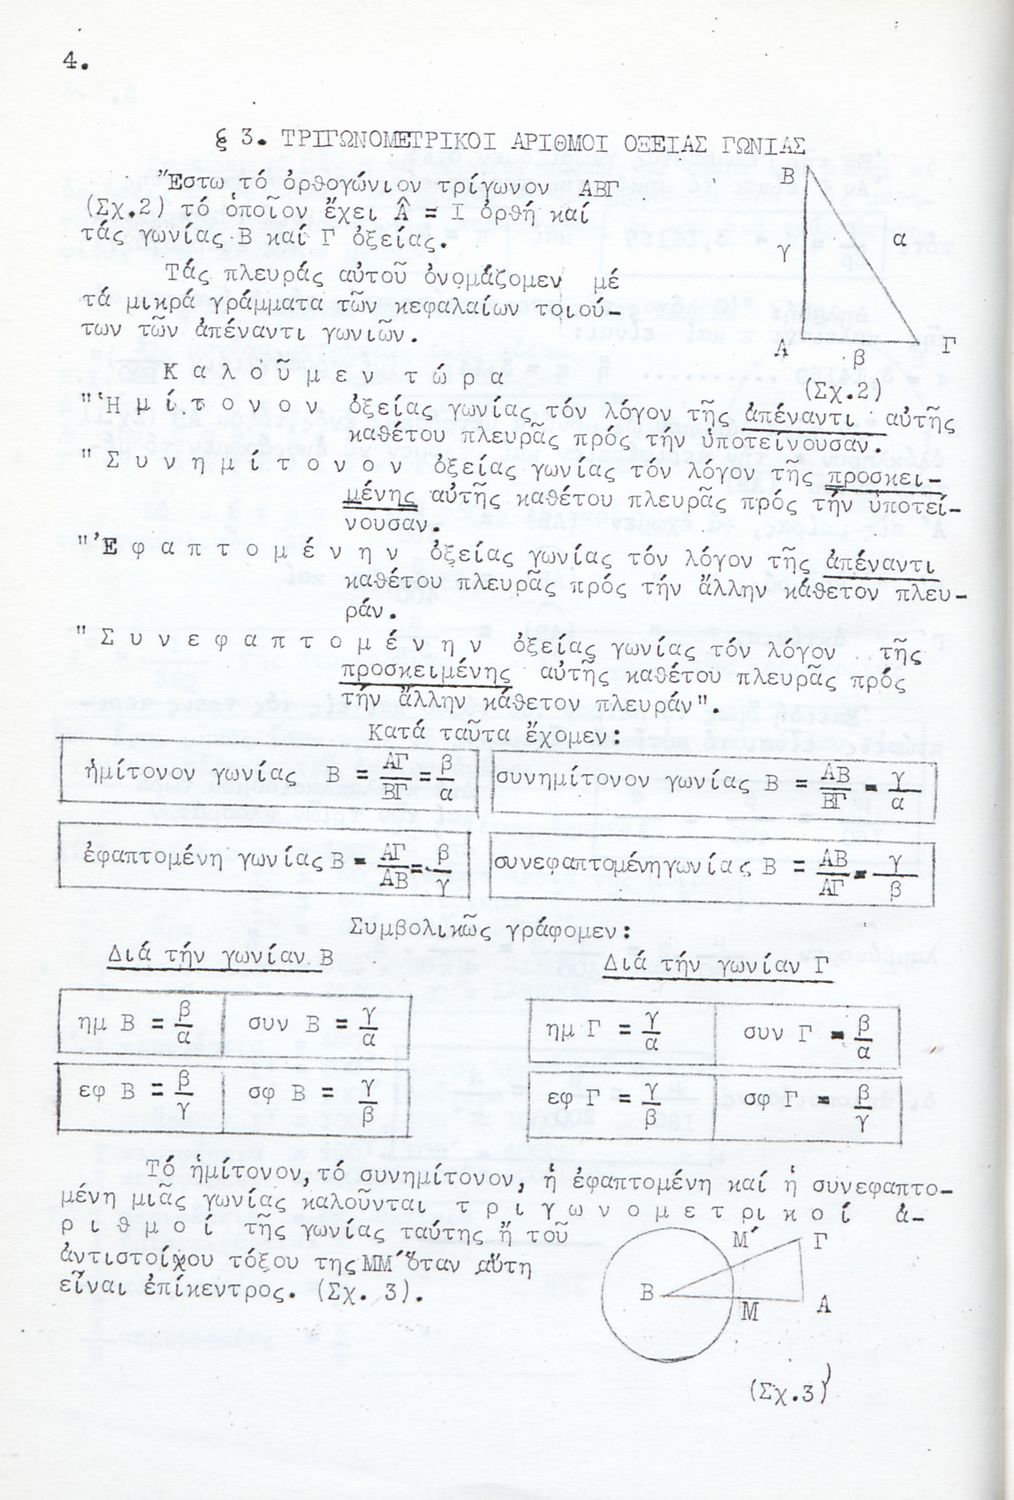 4.
§ 3. ΤΡΙΓΩΝΟΜΕΤΡΙΚΟΙ ΑΡΙΘΜΟΙ ΟΞΕΙΑΣ ΓΩΝΙΑΣ
Ἔστω τό ὀρθογώνιον τρίγωνον ΑΒΓ
(Σχ.2) τό ὁποῖον ἔχει Â = Ι ὀρθή καί
τάς γωνίας Β καί Γ ὀξείας.
Τάς πλευράς αὐτοῦ ὀνομάζομεν μέ
τά μικρά γράμματα τῶν κεφαλαίων τοιού-
των τῶν ἀπέναντι γωνιῶν.
Β
γ
α
Α
β
Γ
(Σχ.2)
Κ α λ ο ῦ μ ε ν τ ώ ρ α
"Ἡ μ ί τ ο ν ο ν ὀξείας γωνίας τόν λόγον τῆς ἀπέναντι αὐτῆς
καθέτου πλευρᾶς πρός τήν ὑποτείνουσαν."
"Σ υ ν η μ ί τ ο ν ο ν ὀξείας γωνίας τόν λόγον τῆς προσκει-
μένης αὐτῆς καθέτου πλευρᾶς πρός τήν ὑποτεί-
νουσαν.
"Ἐ φ α π τ ο μ έ ν η ν ὀξείας γωνίας τόν λόγον τῆς ἀπέναντι
καθέτου πλευρᾶς πρός τήν ἄλλην κάθετον πλευ-
ράν.
"Σ υ ν ε φ α π τ ο μ έ ν η ν ὀξείας γωνίας τόν λόγον τῆς
προσκειμένης αὐτῆς καθέτου πλευρᾶς πρός
τήν ἄλλην κάθετον πλευράν".
Κατά ταῦτα ἔχομεν:
ἡμίτονον γωνίας Β = ΑΓ/ΒΓ = β/α
συνημίτονον γωνίας Β = ΑΒ/ΒΓ = γ/α
ἐφαπτομένη γωνίας Β = ΑΓ/ΑΒ = β/γ
συνεφαπτομένη γωνίας Β = ΑΒ/ΑΓ = γ/β
Συμβολικῶς γράφομεν:
Διά τήν γωνίαν Β
Διά τήν γωνίαν Γ
ημ Β = β/α συν Β = γ/α
ημ Γ = γ/α συν Γ = β/α
εφ Β = β/γ σφ Β = γ/β
εφ Γ = γ/β σφ Γ = β/γ
Τό ἡμίτονον, τό συνημίτονον, ἡ ἐφαπτομένη καί ἡ συνεφαπτο-
μένη μιᾶς γωνίας καλοῦνται τ ρ ι γ ω ν ο μ ε τ ρ ι κ ο ί ἀ-
ρ ι θ μ ο ί τῆς γωνίας ταύτης ἤ τοῦ
ἀντιστοίχου τόξου της ΜΜ΄ ὅταν αὕτη
εἶναι ἐπίκεντρος. (Σχ. 3).
Μ΄
Γ
Β
Μ
Α
(Σχ.3)